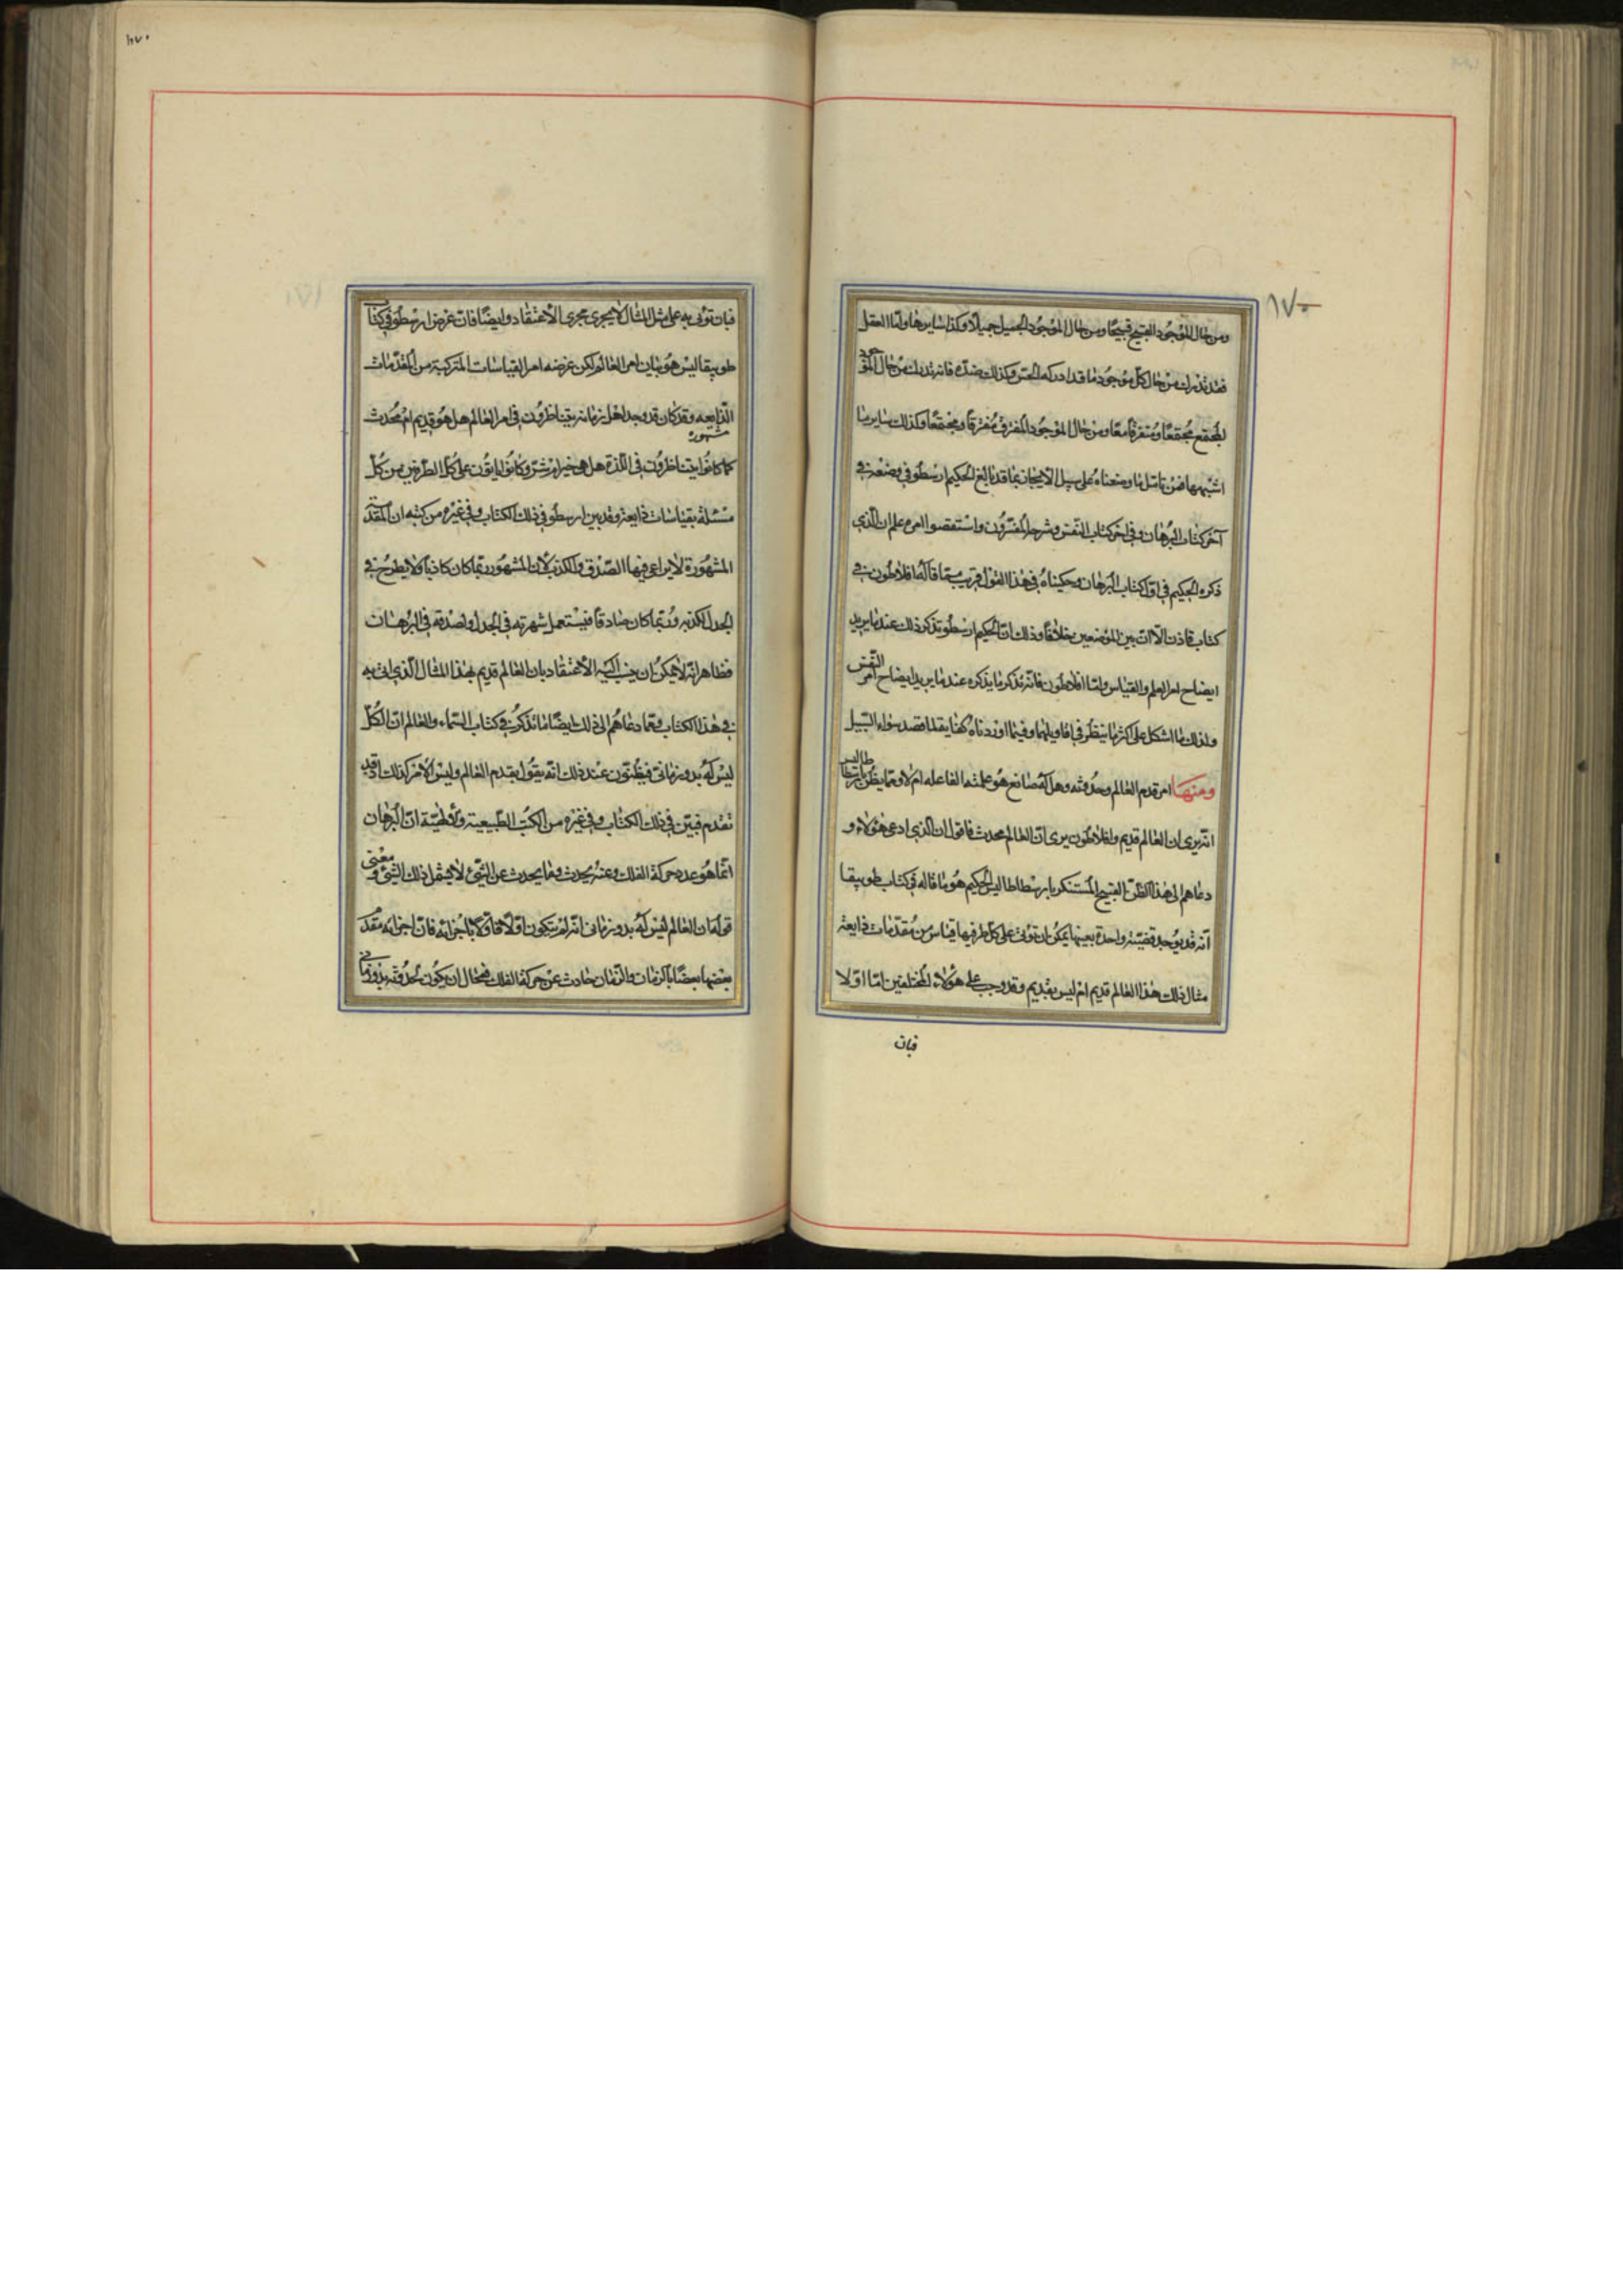 ١٧٠
ومن حال الموجود القبيح قبيحًا ومن حال الموجود الجميل جميلًا وكذا سايرها وامّا العقل
فقد تدرك من حال كلّ موجود ما قد ادركه الحسّ وكذلك ضدّه فانه تدرك من حال الموجود
المجتمع مجتمعًا ومتفرقًا معًا ومن حال الموجود المفترق مفترقًا ومجتمعًا وكذلك ساير ما
اشبهها فمن تامّل ما وصفناه على سبيل الايجاز بما قد بالغ الحكيم ارسطو في وصفه في
آخر كتاب البرهان وفي اخر كتاب النفس وشرحه المفسّرون واستقصوا امره علم ان الّذي
ذكره الحكيم في اوّل كتاب البرهان وحكيناه في هذا القول قريب ممّا قاله افلاطون في
كتاب فاذن الّا انّ بين الموضعين خلافًا وذلك انّ الحكيم ارسطو تذكر ذلك عند ما يريد
ايضاح امر العلم والقياس وامّا افلاطون فانّه تذكر ما يذكره عند ما يريد ايضاح امر النّفس
ولذلك ما اشكل على اكثر ما ينظر في اقاويلهما وفيما اوردناه كفاية لما قصد سواء السّبيل
ومنها امر قدم العالم وحدوثه وهل له صانع هو علته الفاعله ام لا وممّا يظنّ بارسطاطاليس
انّه يرى ان العالم قديم وافلاطون يرى انّ العالم محدث فاقول ان الّذي ادعى هؤلاء و
دعاهم الى هذا الظنّ القبيح المستنكر بارسطاطاليس الحكيم هو ما قاله في كتاب طوبيقا
انّه قد يوجد قضيّة واحدة بعينها يمكن ان توتى على كلّ طرفيها قياس من مقدّمات ذايعة
مثال ذلك هذا العالم قديم ام ليس بقديم وقد وجب على هؤلاء المختلفين امّا اوّلا
فبان
١٧٠
فبان توتى به على مثل المثال لا يجرى مجرى الاعتقاد وايضًا فانّ غرض ارسطو في كتاب
طوبيقا ليس هو بيان امر العالم لكن غرضه امر القياسات المتركبة من المقدّمات
الذّايعه وقد كان قد وجد اهل زمانه يتناظرون في امر العالم هل هو قديم ام محدث
مشهوره
كما كانوا يتناظرون في اللّذة هل هي خير ام شرّ وكانوا ياتون على كلّ الطرفين من كلّ
مسئلة بقياسات ذايعة وقد بين ارسطو في ذلك الكتاب وفي غيره من كتبه ان المقدّمة
المشهورة لا يراعى فيها الصّدق والكذب لان المشهور ربّما كان كاذبًا ولا يطرح في
الجدل لكذبه وربّما كان صادقًا فيستعمل لشهرته في الجدل ولصدقه في البرهان
فظاهر انّه لا يمكن ان ينسب اليه الاعتقاد بان العالم قديم بهذا المثال الّذي اتى به
في هذا الكتاب وممّا دعاهم الى ذلك ايضًا ما تذكره في كتاب السّماء والعالم انّ الكلّ
ليس له بدو زمانىّ فيظنّون عند ذلك انّه يقول بقدم العالم وليس الامر كذلك اذ قد
تقدم فبيّن في ذلك الكتاب وفي غيره من الكتب الطّبيعية والالهيّة انّ الزمان
انّما هو عدد حركة الفلك وعنه يحدث وما يحدث عن الشّئ لا يشمل ذلك الشّئ ومعنى
قوله ان العالم ليس له بدو زمانى انّه لم يتكون اوّلًا فاوّلًا باجزائه فانّ اجزائه مقدّم
بعضها بعضًا بالزمان والزّمان حادث عن حركة الفلك فمحال ان يكون لحدوثه بدو زماني